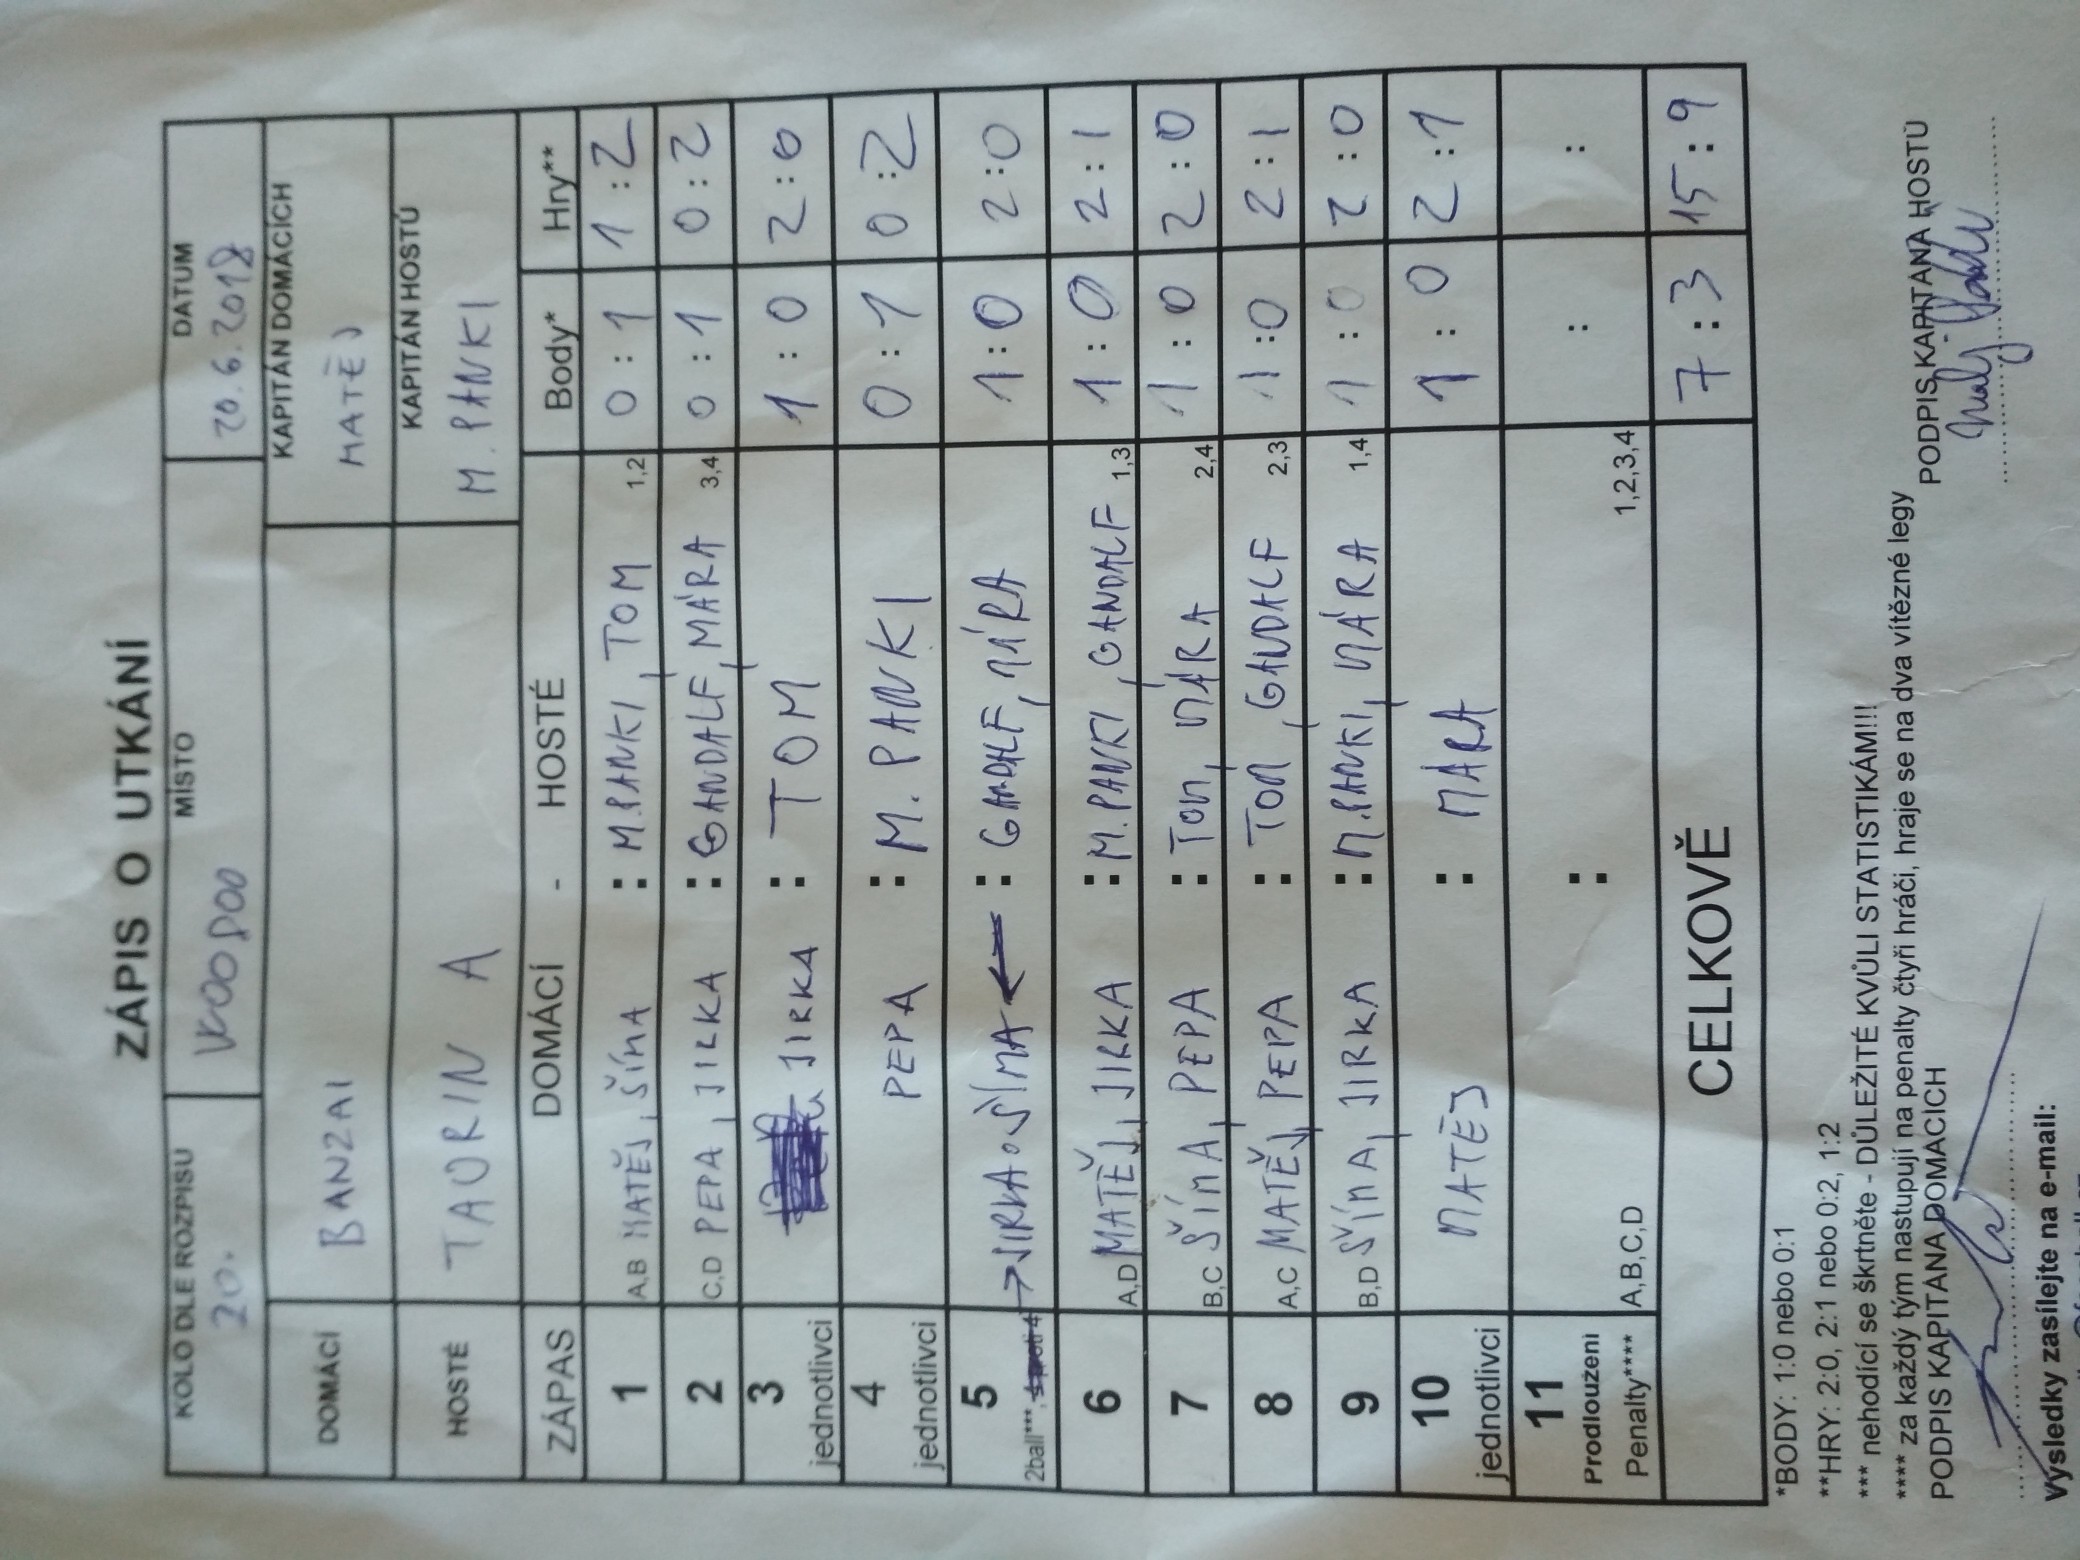 ZÁPIS O UTKÁNÍ
KOLO DLE ROZPISU MÍSTO DATUM
20. VOODOO 20.6.2018
DOMÁCÍ BANZAI KAPITÁN DOMÁCÍCH
MATĚJ
HOSTÉ TAORIN A KAPITÁN HOSTŮ
M. PANKI
ZÁPAS DOMÁCÍ - HOSTÉ Body* Hry**
1 A,B MATĚJ, ŠÍMA : M.PANKI, TOM 1,2 0 : 1 1 : 2
2 C,D PEPA, JIRKA : GANDALF, MÁRA 3,4 0 : 1 0 : 2
3 jednotlivci JIRKA : TOM 1 : 0 2 : 0
4 jednotlivci PEPA : M. PANKI 0 : 1 0 : 2
5 2ball***, → JIRKA a ŠÍMA ← : GANDALF, MÁRA 1 : 0 2 : 0
6 A,D MATĚJ, JIRKA : M.PANKI, GANDALF 1,3 1 : 0 2 : 1
7 B,C ŠÍMA, PEPA : TOM, MÁRA 2,4 1 : 0 2 : 0
8 A,C MATĚJ, PEPA : TOM, GANDALF 2,3 1 : 0 2 : 1
9 B,D ŠÍMA, JIRKA : M.PANKI, MÁRA 1,4 1 : 0 2 : 0
10 jednotlivci MATĚJ : MÁRA 1 : 0 2 : 1
11 : : :
Prodloužení
Penalty**** A,B,C,D 1,2,3,4
CELKOVĚ 7 : 3 15 : 9
*BODY: 1:0 nebo 0:1
**HRY: 2:0, 2:1 nebo 0:2, 1:2
*** nehodící se škrtněte - DŮLEŽITÉ KVŮLI STATISTIKÁM!!!
**** za každý tým nastupují na penalty čtyři hráči, hraje se na dva vítězné legy
PODPIS KAPITÁNA DOMÁCÍCH PODPIS KAPITÁNA HOSTŮ
Výsledky zasílejte na e-mail: